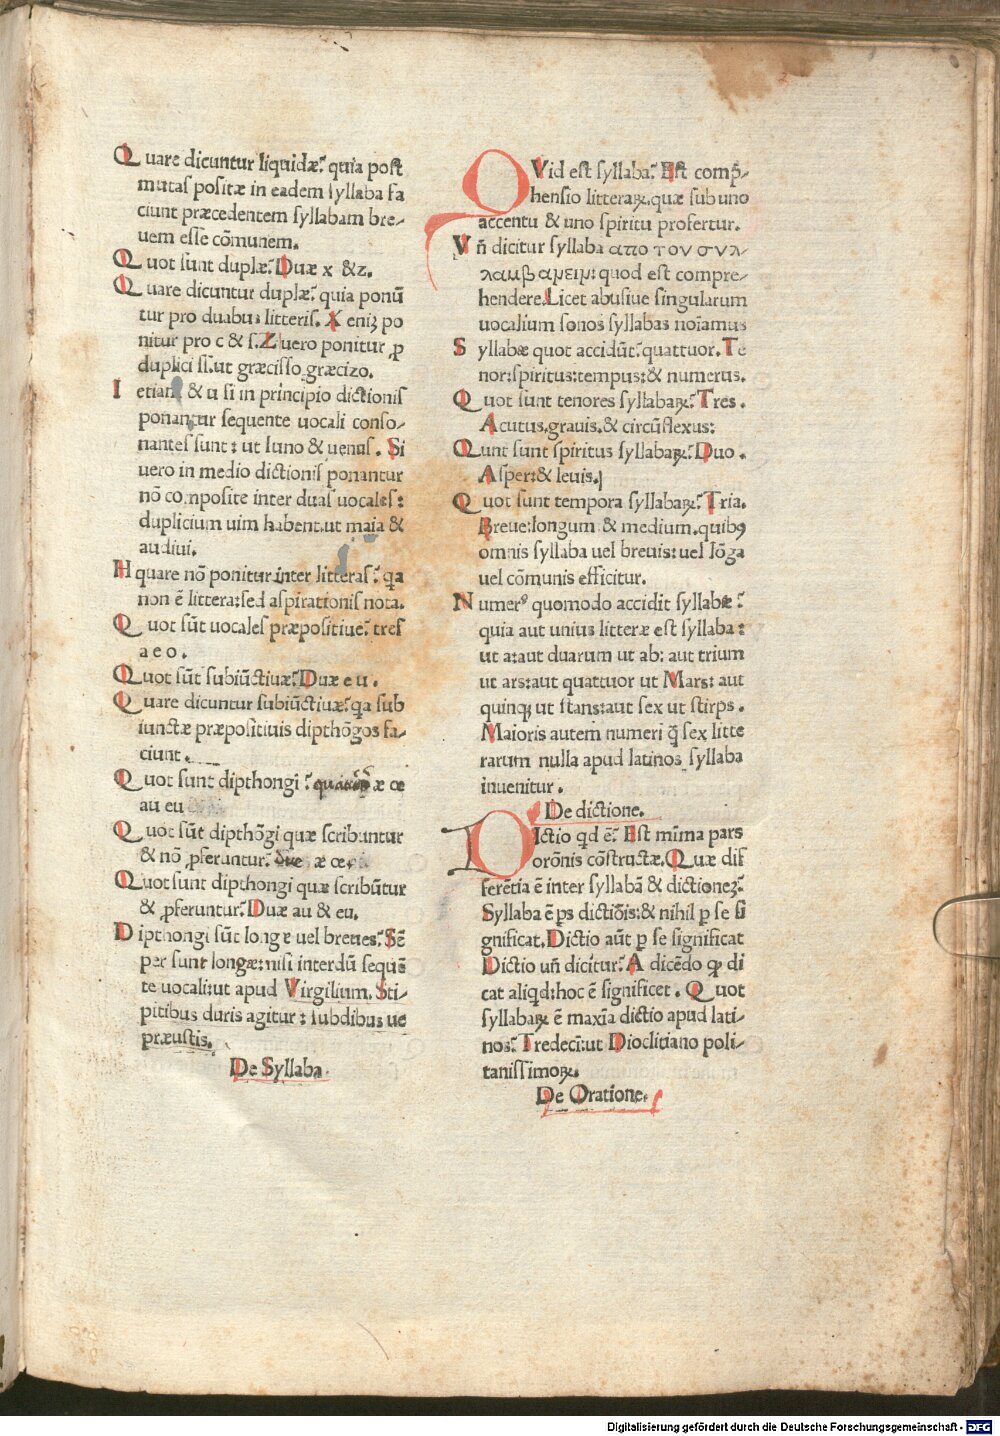 Quare dicuntur liquidæ? quia post
mutas positæ in eadem syllaba fa
ciunt præcedentem syllabam bre-
uem esse cōmunem.
Quot sunt duplæ? Duæ x & z.
Quare dicuntur duplæ? quia ponū
tur pro duabus litteris. X eniȝ po
nitur pro c & s. Z uero ponitur ꝓ
duplici ss. ut græcisso græcizo.
I etiam & u si in principio dictionis
ponantur sequente uocali conso-
nantes sunt: ut Iuno & uenus. Si
uero in medio dictionis ponantur
nō composite inter duas uocales:
duplicium uim habent. ut maia &
audiui.
H quare nō ponitur inter litteras? qa
non ē littera: sed aspirationis nota.
Quot sūt uocales præpositiue? tres
a e o.
Quot sūt subiūctiuæ? Duæ e u.
Quare dicuntur subiūctiuæ? qa sub
iunctæ præpositiuis dipthōgos fa-
ciunt.
Quot sunt dipthongi? æ œ
au eu
Quot sūt dipthōgi quæ scribuntur
& nō ꝓferuntur? duæ æ œ.
Quot sunt dipthongi quæ scribūtur
& ꝓferuntur? Duæ au & eu.
Dipthongi sūt longæ uel breues? Sē
per sunt longæ: nisi interdū sequē
te uocali: ut apud Virgilium. Sti-
pitibus duris agitur: sudibus ue
præustis.
De Syllaba.
QVid est syllaba? Est comp̄-
hensio litteraꝝ. quæ sub uno
accentu & uno spiritu profertur.
Vn̄ dicitur syllaba απο του συλ-
λαμβανειν: quod est compre-
hendere. Licet abusiue singularum
uocalium sonos syllabas noīamus
Syllabæ quot accidūt? quattuor. Te
nor: spiritus: tempus: & numerus.
Quot sunt tenores syllabaꝝ? Tres.
Acutus. grauis. & circūflexus:
Qunt sunt spiritus syllabaꝝ? Duo.
Asper: & leuis.
Quot sunt tempora syllabaꝝ? Tria.
Breue: longum & medium. quibꝯ
omnis syllaba uel breuis: uel lōga
uel cōmunis efficitur.
Numerꝰ quomodo accidit syllabæ?
quia aut unius litteræ est syllaba:
ut a: aut duarum ut ab: aut trium
ut ars: aut quattuor ut Mars: aut
quinqꝫ ut stans: aut sex ut stirps.
Maioris autem numeri q̄ sex litte
rarum nulla apud latinos syllaba
inuenitur.
De dictione.
DIctio qd ē? Est mīma pars
orōnis cōstructæ. Quæ dif
ferētia ē inter syllabā & dictioneȝ?
Syllaba ē ꝑs dictiōis: & nihil ꝑ se si
gnificat. Dictio aūt ꝑ se significat
Dictio un̄ dicitur? A dicēdo ꝙ di
cat aliqd: hoc ē significet. Quot
syllabaꝝ ē maxīa dictio apud lati-
nos? Tredecī: ut Dioclitiano poli-
tanissimoꝝ.
De Oratione.
Digitalisierung gefördert durch die Deutsche Forschungsgemeinschaft - DFG